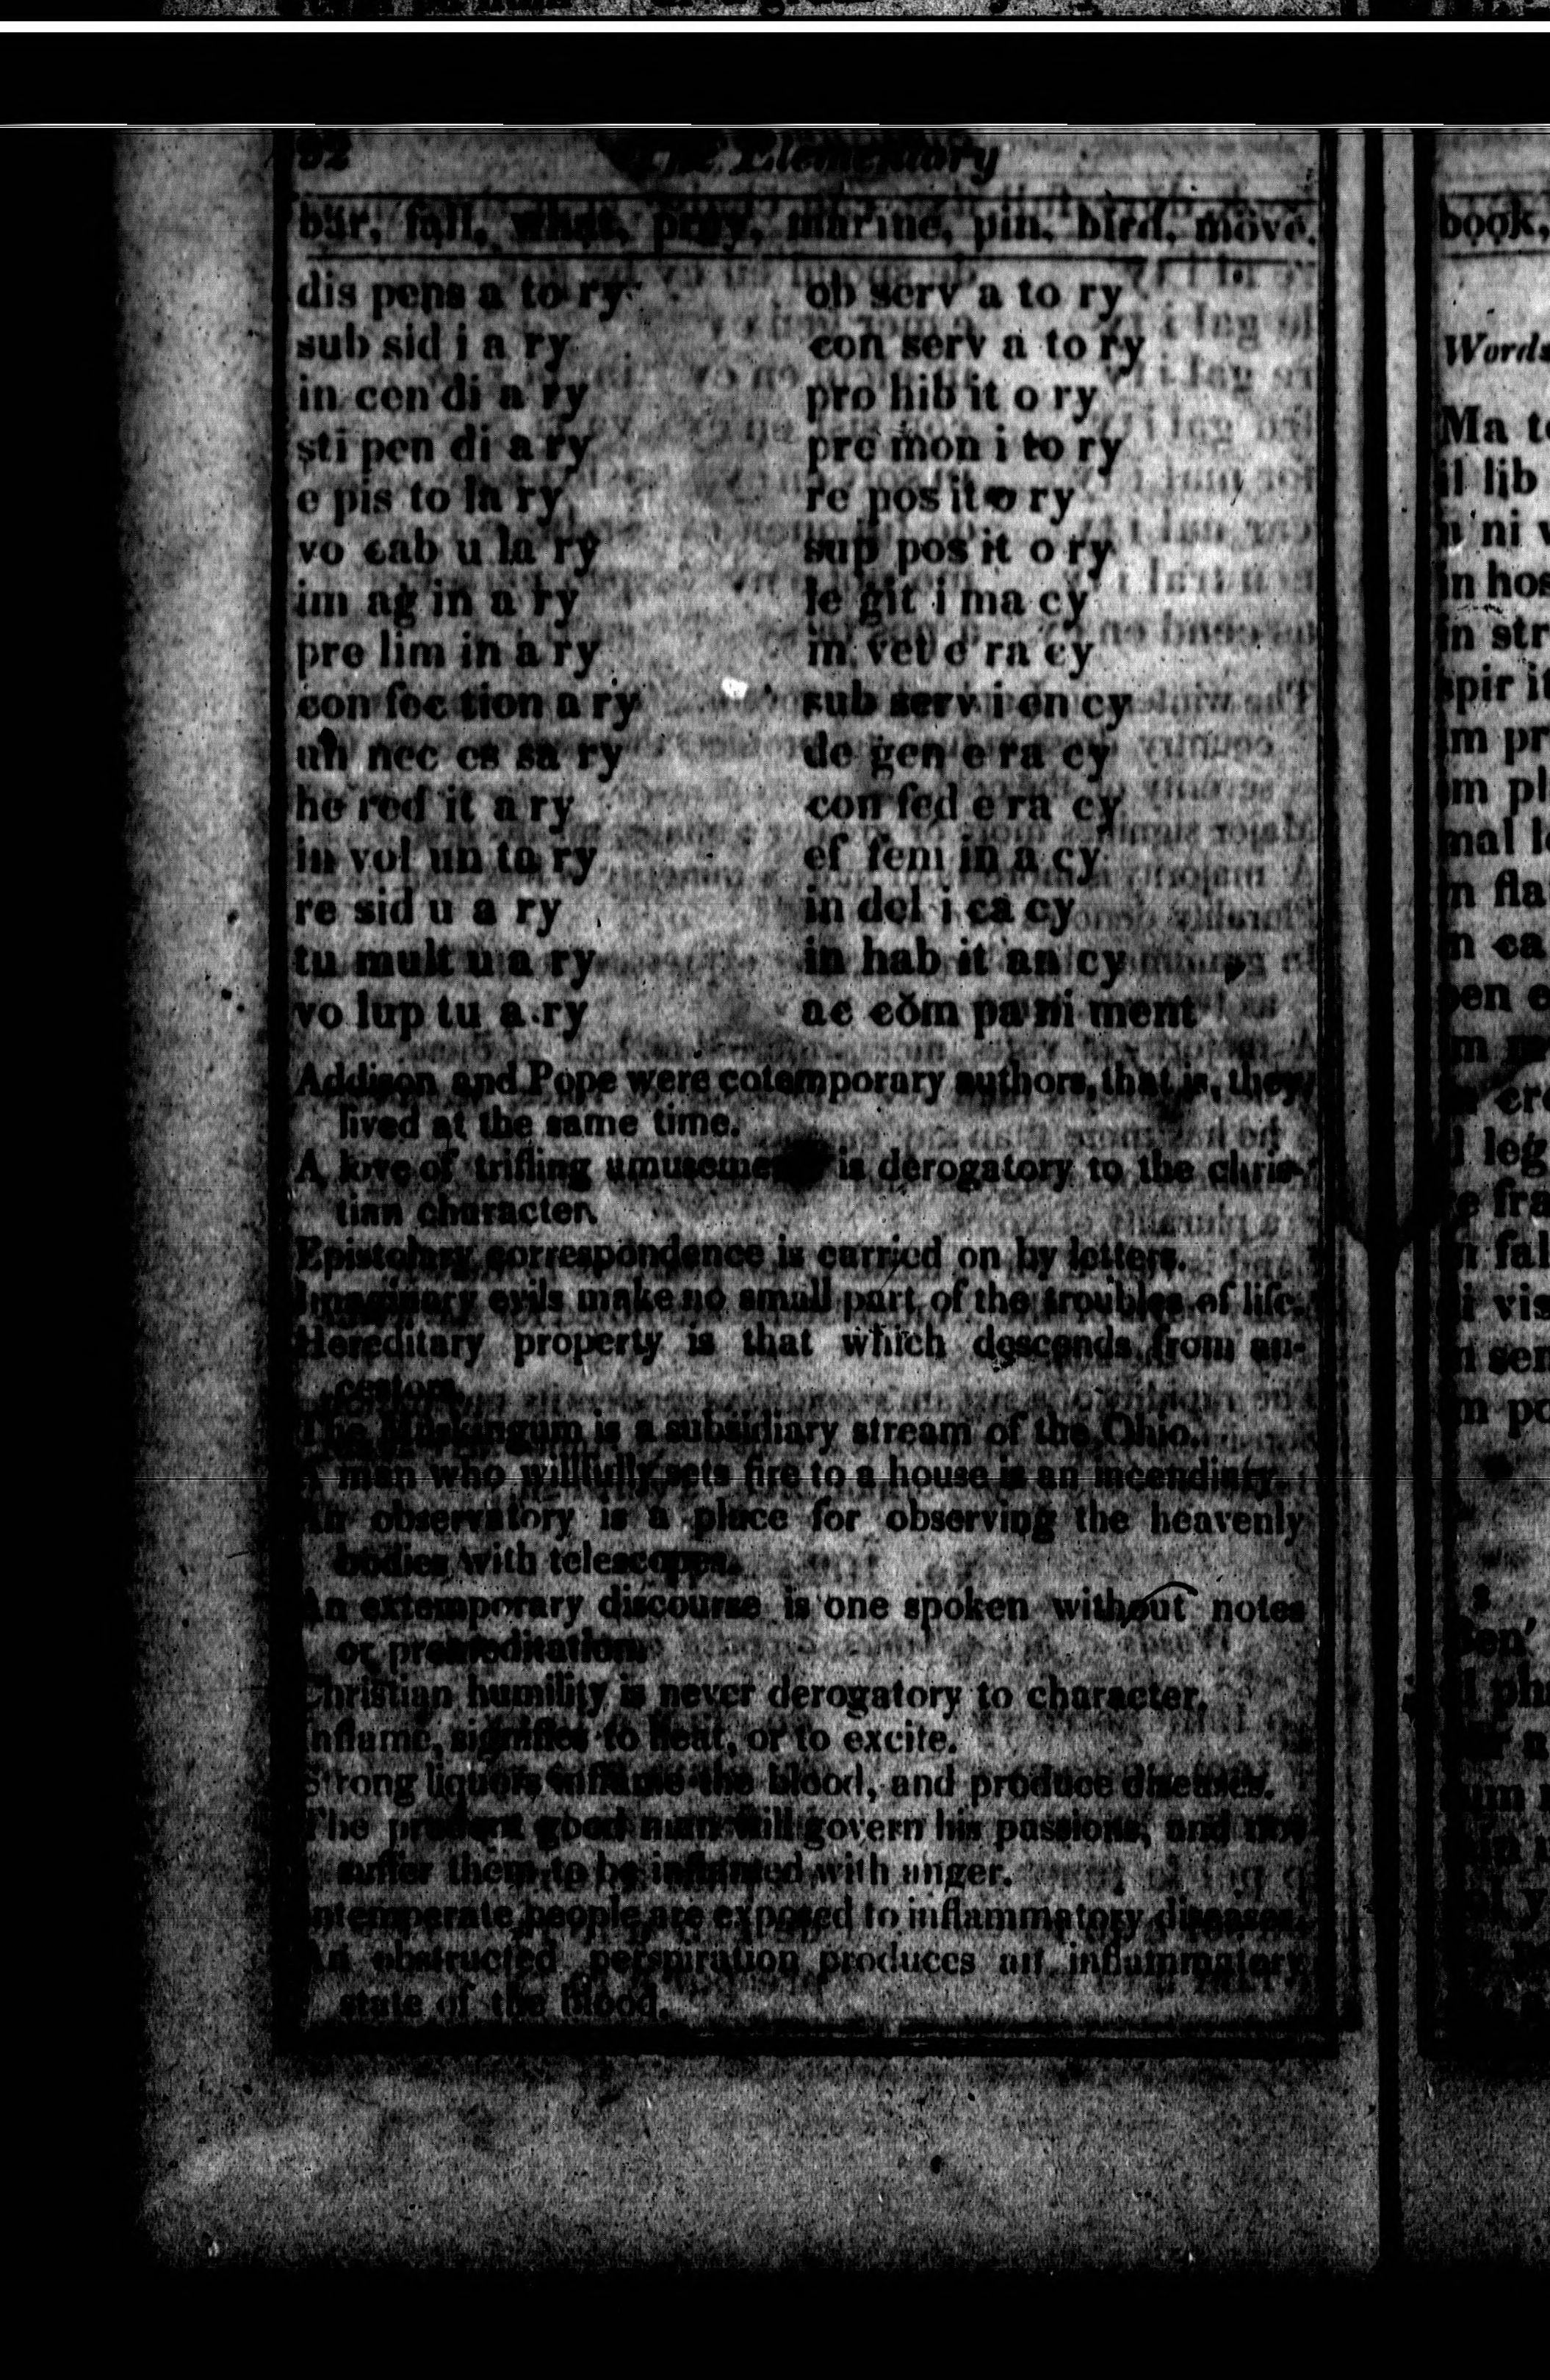 92 The Elementary
bär, fall, what, prey, marïne, pin, bird, möve.
dis pens a to ry
sub sid i a ry
in cen di a ry
sti pen di a ry
e pis to la ry
vo cab u la ry
im ag in a ry
pre lim in a ry
con fec tion a ry
un nec es sa ry
he red it a ry
in vol un ta ry
re sid u a ry
tu mult u a ry
vo lup tu a ry
ob serv a to ry
con serv a to ry
pro hib it o ry
pre mon i to ry
re pos it o ry
sup pos it o ry
le git i ma cy
in vet e ra cy
sub serv i en cy
de gen e ra cy
con fed e ra cy
ef fem in a cy
in del i ca cy
in hab it an cy
ac cŏm pa ni ment
Addison and Pope were cotemporary authors, that is, they
lived at the same time.
A love of trifling amusements is derogatory to the chris-
tian character.
Epistolary correspondence is carried on by letters.
Imaginary evils make no small part of the troubles of life.
Hereditary property is that which descends from an-
cestors.
The Muskingum is a subsidiary stream of the Ohio.
A man who willfully sets fire to a house is an incendiary.
An observatory is a place for observing the heavenly
bodies with telescopes.
An extemporary discourse is one spoken without notes
or premeditation.
Christian humility is never derogatory to character.
Inflame, signifies to heat, or to excite.
Strong liquors inflame the blood, and produce diseases.
The prudent good man will govern his passions, and not
suffer them to be inflamed with anger.
Intemperate people are exposed to inflammatory diseases.
An obstructed perspiration produces an inflammatory
state of the blood.
book,
Words
Ma
il lib
ni
in hos
in str
spir it
im pr
im pl
mal
in fla
in ca
leg
fra
fal
vis
sen
po